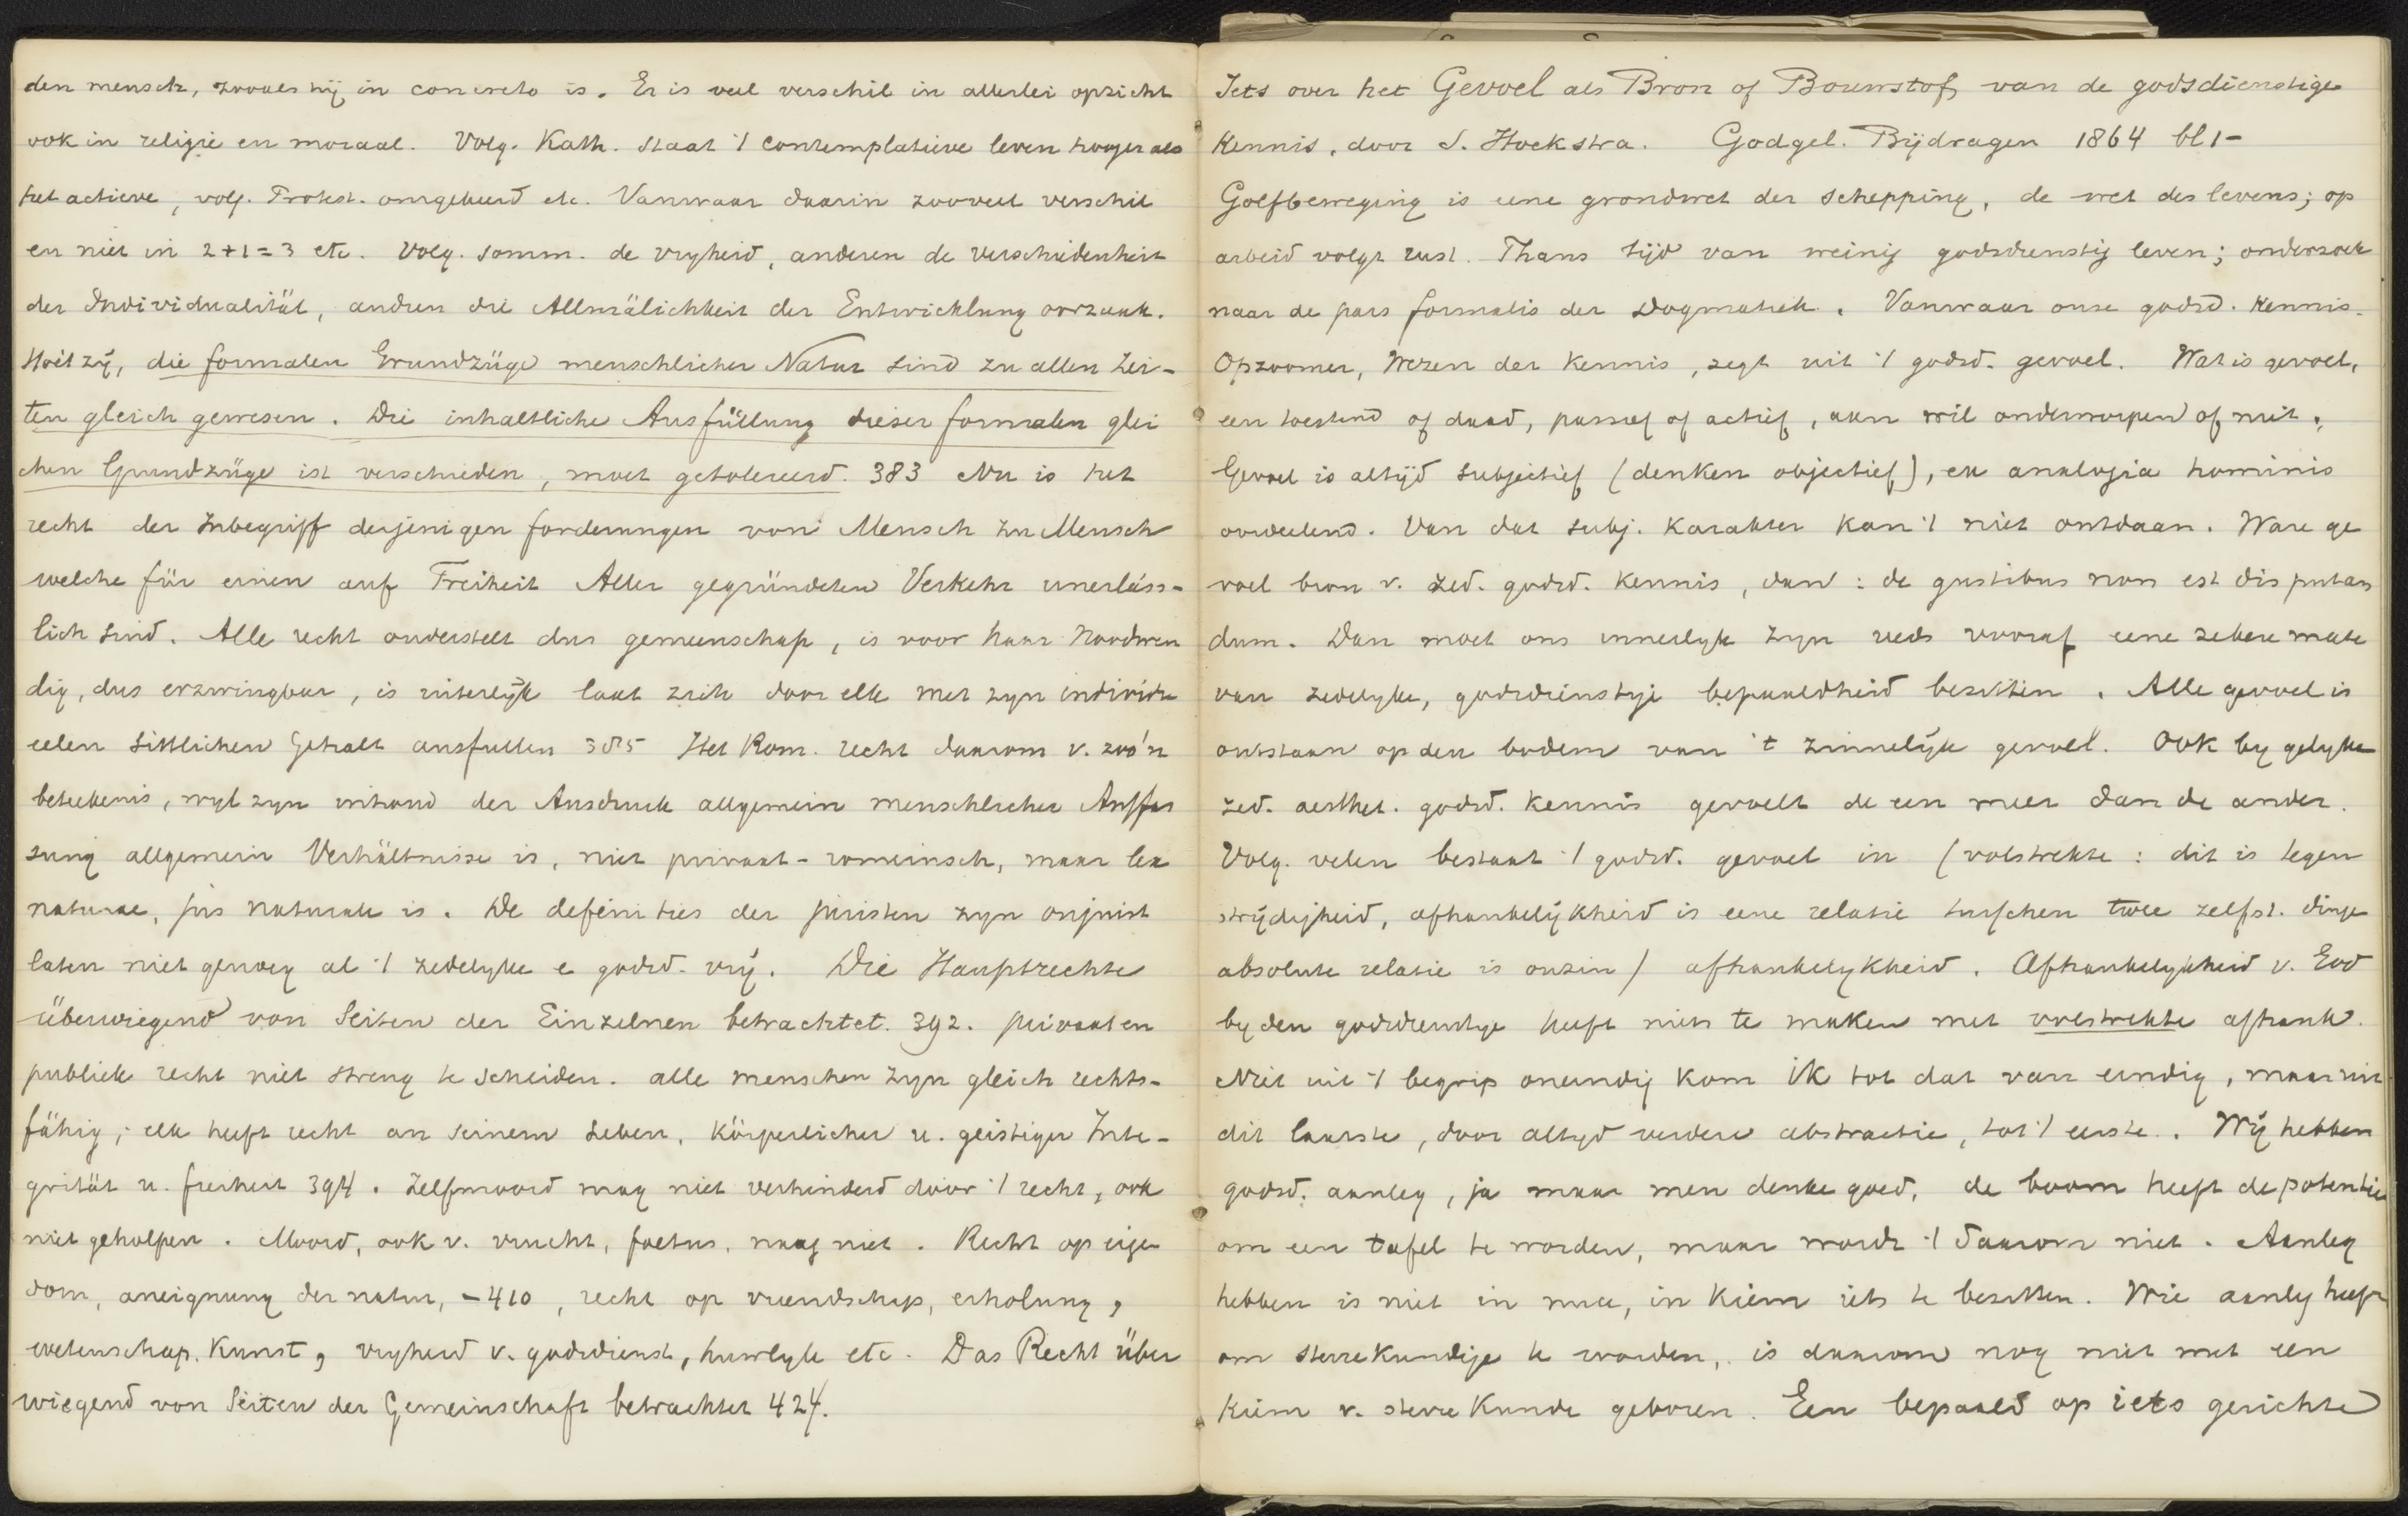 den mensch, zooals hij in concreto is. Er is veel verschil in allerlei opzicht
ook in religie en moraal. Volg. Kath. staat 't contemplatieve leven hooger als
het actieve, volg. Protest. omgekeerd etc. Vanwaar daarin zooveel verschil
en niet in 2+1=3 etc. Volg. somm. de vryheid, anderen de Verschiedenheit
der Individualität, andren die Allmälichkeit der Entwicklung oorzaak.
Hoe 't zij, die formalen Grundzüge menschlicher Natur sind zu allen Zei-
ten gleich gewesen. Die inhaltliche Ausfüllung dieser formalen glei
chen Grundzüge ist verschieden, moet getolereerd. 383 Nu is het
recht der Inbegriff derjenigen forderungen von Mensch zu Mensch
welche für einen auf Freiheit Aller gegründeten Verkehr unerläss-
lich sind. Alle recht onderstelt dus gemeenschap, is voor haar noodwen
dig, dus erzwingbar, is uiterlijk laat zich door elk met zyn individu
eelen sittlichen Gehalt ausfullen 385 Het Rom. recht daarom v. zoo'n
beteekenis, wyl zyn inhoud der Ausdruck allgemein menschlicher Auffas
sung allgemein Verhältnisse is, niet privaat-romeinsch, maar lex
naturae, jus naturale is. De definities der juristen zyn onjuist
laten niet genoeg al 't zedelyke e godsd. vrij. Die Hauptrechte
überwiegend von Seiten der Einzelnen betrachtet. 392. privaat en
publiek recht niet streng te scheiden. alle menschen zyn gleich rechts-
fähig; elk heeft recht an seinem Leben, körperlicher u. geistiger Inte-
grität u. freiheit 394. Zelfmoord mag niet verhinderd door 't recht, ook
niet geholpen. Moord, ook v. vrucht, foetus, mag niet. Recht op eigen
dom, aneignung der natur, -410, recht op vriendschap, erholung,
wetenschap. Kunst, vryheid v. godsdienst, huwlyk etc. Das Recht über
wiegend von Seiten der Gemeinschaft betrachtet 424.
Iets over het Gevoel als Bron of Bouwstof van de godsdienstige
Kennis, door S. Hoekstra. Godgel. Bijdragen 1864 bl 1-
Golfbeweging is eene grondwet der schepping, de wet des levens; op
arbeid volgt rust. Thans tijd van weinig godsdienstig leven; onderzoek
naar de pars formalis der Dogmatiek. Vanwaar onze godsd. kennis.
Opzoomer, Wezen der Kennis, zegt uit 't godsd. gevoel. Wat is gevoel,
een toestand of daad, passief of actief, aan wil onderworpen of niet.
Gevoel is altijd subjectief (denken objectief), ex analogia hominis
oordeelend. Van dat subj. karakter kan 't niet ontdaan. Ware ge
voel bron v. zed. godsd. kennis, dan: de gustibus non est disputan
dum. Dan moet ons innerlyk zyn reeds vooraf eene zekere mate
van zedelyke, godsdienstige bepaaldheid bezitten. Alle gevoel is
ontstaan op den bodem van 't zinnelijk gevoel. Ook by gelyke
zed. aesthet. godsd. kennis gevoelt de een meer dan de ander.
Volg. velen bestaat 't godsd. gevoel in (volstrekte: dit is tegen
strijdigheid, afhankelijkheid is eene relatie tusschen twee zelfst. dingen
absolute relatie is onzin) afhankelykheid. Afhankelykheid v. God
by den godsdienstige heeft niets te maken met volstrekte afhank.
Niet uit 't begrip oneindig kom ik tot dat van eindig, maar uit
dit laatste, door altyd verdere abstractie, tot 't eerste. Wij hebben
godsd. aanleg, ja maar men denke goed, de boom heeft de potentie
om een tafel te worden, maar wordt 't daarom niet. Aanleg
hebben is niet in nuce, in kiem iets te bezitten. Wie aanleg heeft
om sterrekundige te worden, is daarom nog niet met een
kiem v. sterrekunde geboren. Een bepaald op iets gerichte